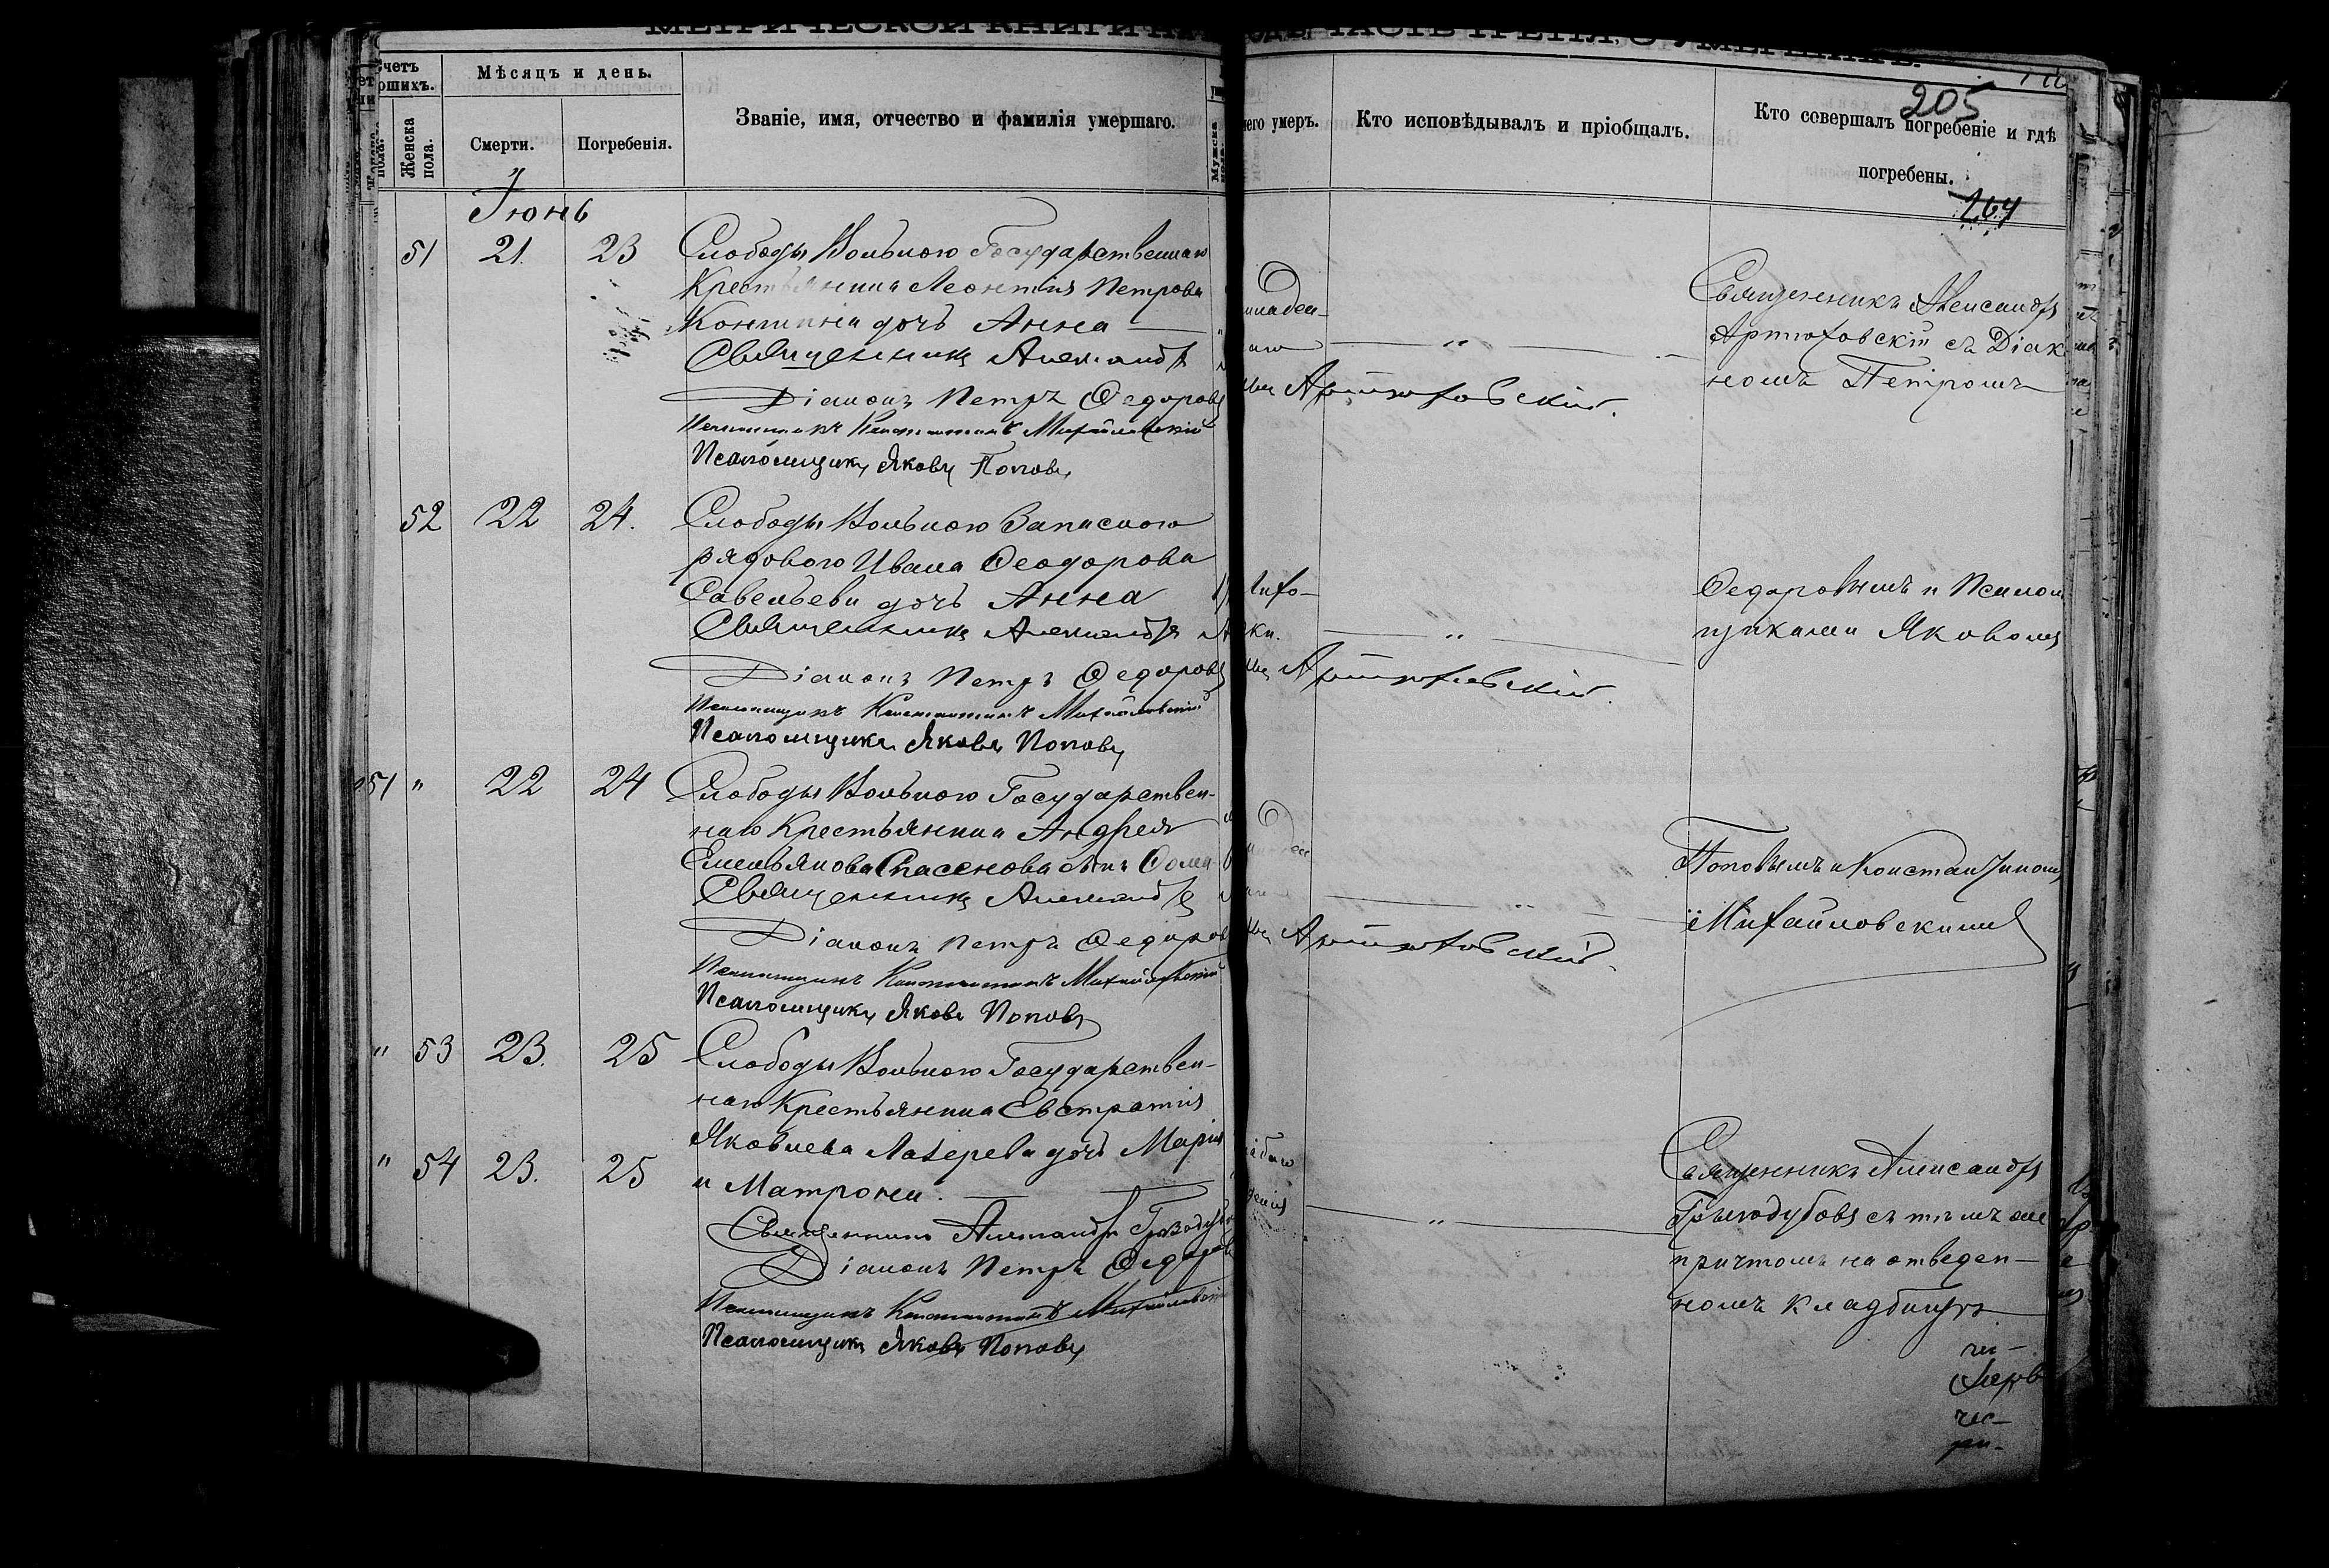 МЕТРИЧЕСКОЙ КНИГИ НА
ЧАСТЬ ТРЕТІЯ, О УМЕРШИХЪ.
205
264
Мѣсяцъ и день.
Женска пола.
Смерти.
Погребенія.
Званіе, имя, отчество и фамилія умершаго.
Мужска
чего умеръ.
Кто исповѣдывалъ и пріобщалъ.
Кто совершалъ погребеніе и гдѣ
погребены.
Іюнь
51 21. 23 Слободы Вольного Государственнаго
Крестьянина Леонтія Петрова
дочь Анна
Священникъ Александръ
Діаконъ Петръ Ѳедоровъ
Псаломщикъ Константинъ Михайловскій
Псаломщикъ Яковъ Поповъ
младен-
Артюховскій.
Священникъ Александръ
Артюховскій съ Діако
номъ Петромъ
52 22 24. Слободы Вольного Запасного
рядового Ивана Ѳеодорова
Савельева дочь Анна
Священникъ Александръ
Діаконъ Петръ Ѳедоровъ
Псаломщикъ Константинъ Михайловскій
Псаломщикъ Яковъ Поповъ
Артюховскій.
Ѳедоровымъ и Псалом
щиками Яковомъ
51 " 22 24 Слободы Вольного Государствен-
наго Крестьянина Андрея
Емельянова Спасенова сынъ Ѳома
Священникъ Александръ
Діаконъ Петръ Ѳедоров
Псаломщикъ Константинъ Михайловскій
Псаломщикъ Яковъ Поповъ
Артюховскій.
Поповымъ и Константиномъ
Михайловскимъ
" 53 23. 25 Слободы Вольного Государствен-
наго Крестьянина Евстратія
Яковлева Лазерева дочь Марія
" 54 23. 25 и Матрона.
Священникъ Александръ
Діаконъ Петръ Ѳедоров
Псаломщикъ Константинъ Михайловскій
Псаломщикъ Яковъ Поповъ
Священникъ Александръ
съ тѣмъ же
причтомъ на отведен-
номъ кладбищѣ